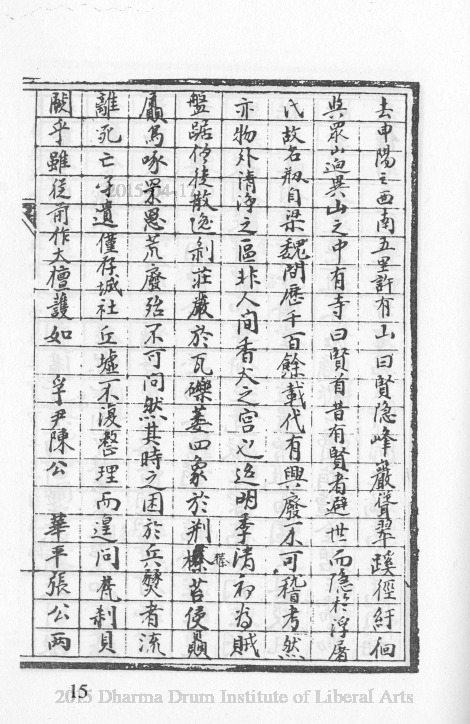 去申陽之西南五里許有山曰賢隐峰巖聳翠蹊徑紆徊
與眾山迥異山之中有寺曰賢首昔有賢者避世而隐於浮屠
氏故名剏自梁魏間歷千百餘載代有興廢不可稽考然
亦物外清淨之區非人间香火之宫也迨明季清初為賊
盤踞僧徒散逸剥莊嚴於瓦礫萎四象於荆榛苔使贔
屭鳥啄罘罳荒廢殆不可问然其時之困於兵燹者流
離死亡孑遺僅存城社丘墟不復整理而遑问梵刹貝
乎雖從前作大檀護如 孚尹陳公 華平張公两
15
2015 Dharma Drum Institute of Liberal Arts